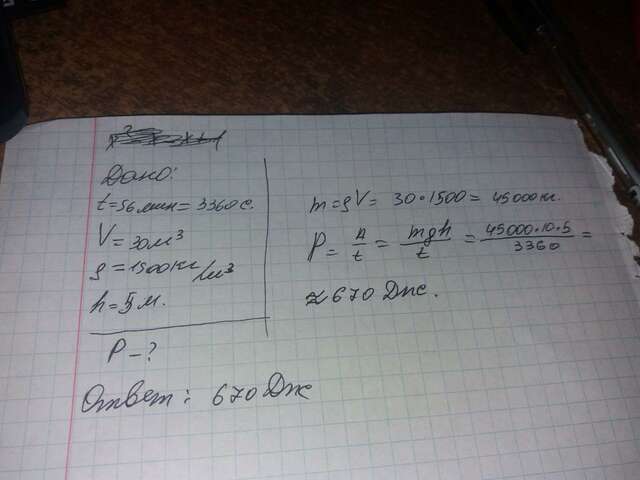 Дано:
t=56мин=3360с.
V=30м³
ρ=1500кг/м³
h=5м.
P-?
m=ρV= 30·1500= 45000кг.
P= A/t = mgh/t = 45000·10·5/3360 =
≈670Дж.
Ответ: 670Дж